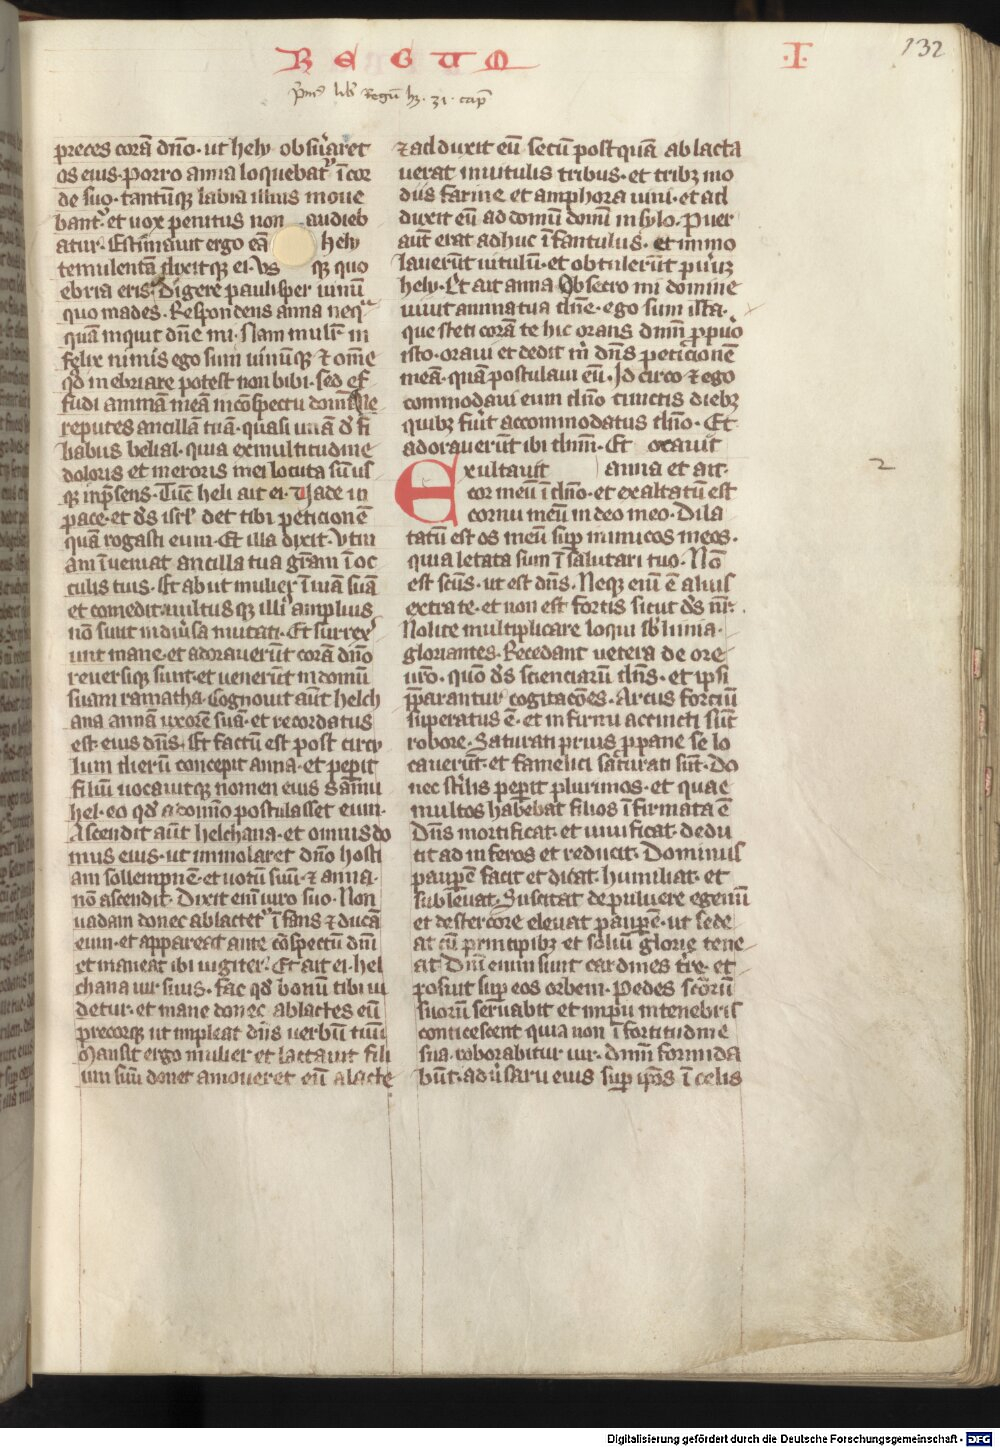 REGUM
·I·
132
p̄mꝰ lib̄ Regū hꝫ · 31 · cap̄
preces corā dn̄o · ut hely obſuaret
os eius · Porro anna loquebat᷑ ī cor
de ſuo · tantūqꝫ labia illius moue
bant᷑ · et uox penitus non audieb
atur · Eſtimauit ergo eā hely
temulentā dixitqꝫ ei · Uſ qꝫ quo
ebria eris · Digere pauliſper uinū
quo mades · Reſpondens anna neq̄
quā inquit dn̄e mi · Nam mulr̄ in
felix nimis ego ſum uinūqꝫ ⁊ om̄e
qd̄ inebriare poteſt non bibi · ſed ef
fudi animā meā in cōſpectu domini Ne
reputes ancillā tuā · quaſi unā d̄ fi
liabus belial · quia ex multitudine
doloris et meroris mei locuta ſū uſ
qꝫ in p̄ſens · Tūc heli ait ei · Uade in
pace · et d̄s iſrl̄ det tibi peticionē
quā rogaſti eum · Et illa dixit · Utin
am īueniat ancilla tua gr̄am ī oc
culis tuis · Et abiit mulier ī uiā ſuā
et comedit · uultusqꝫ illiꝰ amplius
nō ſunt in diuſa mutati · Et ſurrex̄
unt mane · et adorauerūt corā dn̄o
reuerſiqꝫ ſunt · et uenerūt in domū
ſuam ramatha · Cognouit aūt helch
ana annā uxorē ſuā · et recordatus
eſt eius dn̄s · Et factū eſt poſt circu
lum dierū concepit anna · et pep̄it
filiū uocauitqꝫ nomen eius Samu
hel · eo qd̄ a domīo poſtulaſſet eum ·
Aſcendit aūt helchana · et omnis do
mus eius · ut immolaret dn̄o hoſti
am ſollempnē · et uotū ſuū · ⁊ anna ·
nō aſcendit · Dixit enī uiro ſuo · Non
uadam donec ablactet᷑ īfans ⁊ ducā
eum · et appareat ante cōſpectū dn̄i
et maneat ibi iugiter · Et ait ei · hel
chana uir ſuus · fac qd̄ bonū tibi ui
detur · et mane donec ablactes eū
precorqꝫ ut impleat dn̄s uerbū tuū
Manſit ergo mulier et lactauit fili
um ſuū donec amoueret eū a lacte
⁊ adduxit eū ſecū poſtquā ablacta
uerat in uitulis tribus · et tribꝫ mo
diis farine et amphora uini · et ad
duxit eū ad domū domi in ſylo · Puer
aūt erat adhuc īfantulus · et immo
lauerūt uitulū · et obtulerūt pu͛ꝫ
hely · Et ait anna Obſecro mi domine
uiuit anima tua dn̄e · ego ſum iſta ·
que ſteti corā te hic orans dn̄m p̱ puo
iſto · oraui et dedit m̄ dn̄s peticionē
meā · quā poſtulaui eū · Idcirco ⁊ ego
commodaui eum dn̄o cunctis diebꝫ
quibꝫ fuīt accommodatus dn̄o · Et
adorauerūt ibi dn̄m · Et orauit
Exultauit anna et ait ·
2
cor meū ī dn̄o · et exaltatū eſt
cornu meū in deo meo · Dila
tatū eſt os meū ſuꝑ inimicos meos ·
quia letata ſum ī ſalutari tuo · Nō
eſt ſcūs · ut eſt dn̄s · Neqꝫ enī ē alius
extra te · et non eſt fortis ſicut d̄s nr̄ ·
Nolite multiplicare loqui ſb̄limia ·
gloriantes · Recedant uetera de ore
ur̄o · quō d̄s ſcienciarū dn̄s · et ipſi
p̄parantur cogitacōes · Arcus forciū
ſuperatus ē · et infirmi accincti ſūt
robore · Saturati prius p̱ pane ſe lo
cauerūt · et famelici ſaturati ſūt · Do
nec ſt͛ilis pep̄it plurimos · et quae
multos habebat filios īfirmata ē
Dn̄s mortificat et uiuificat · dedu
cit ad inferos et reducit · Dominus
pauꝑē facit et ditat · humiliat et
ſubleuat · Suſcitat de puluere egenū
et de ſtercore eleuat pauꝑē · ut ſede
at cū principibꝫ et ſoliū glorie tene
at Dn̄i enim ſunt cardines tr̄e · et
poſuit ſuꝑ eos orbem · Pedes ſc̄orū
ſuorū ſeruabit et impii in tenebris
conticeſcent quia non ī fortitudine
ſua · roborabitur uir · dn̄m formida
būt · adu͛ſarii eius ſuꝑ ipōs ī celis
Digitalisierung gefördert durch die Deutsche Forschungsgemeinschaft - DFG